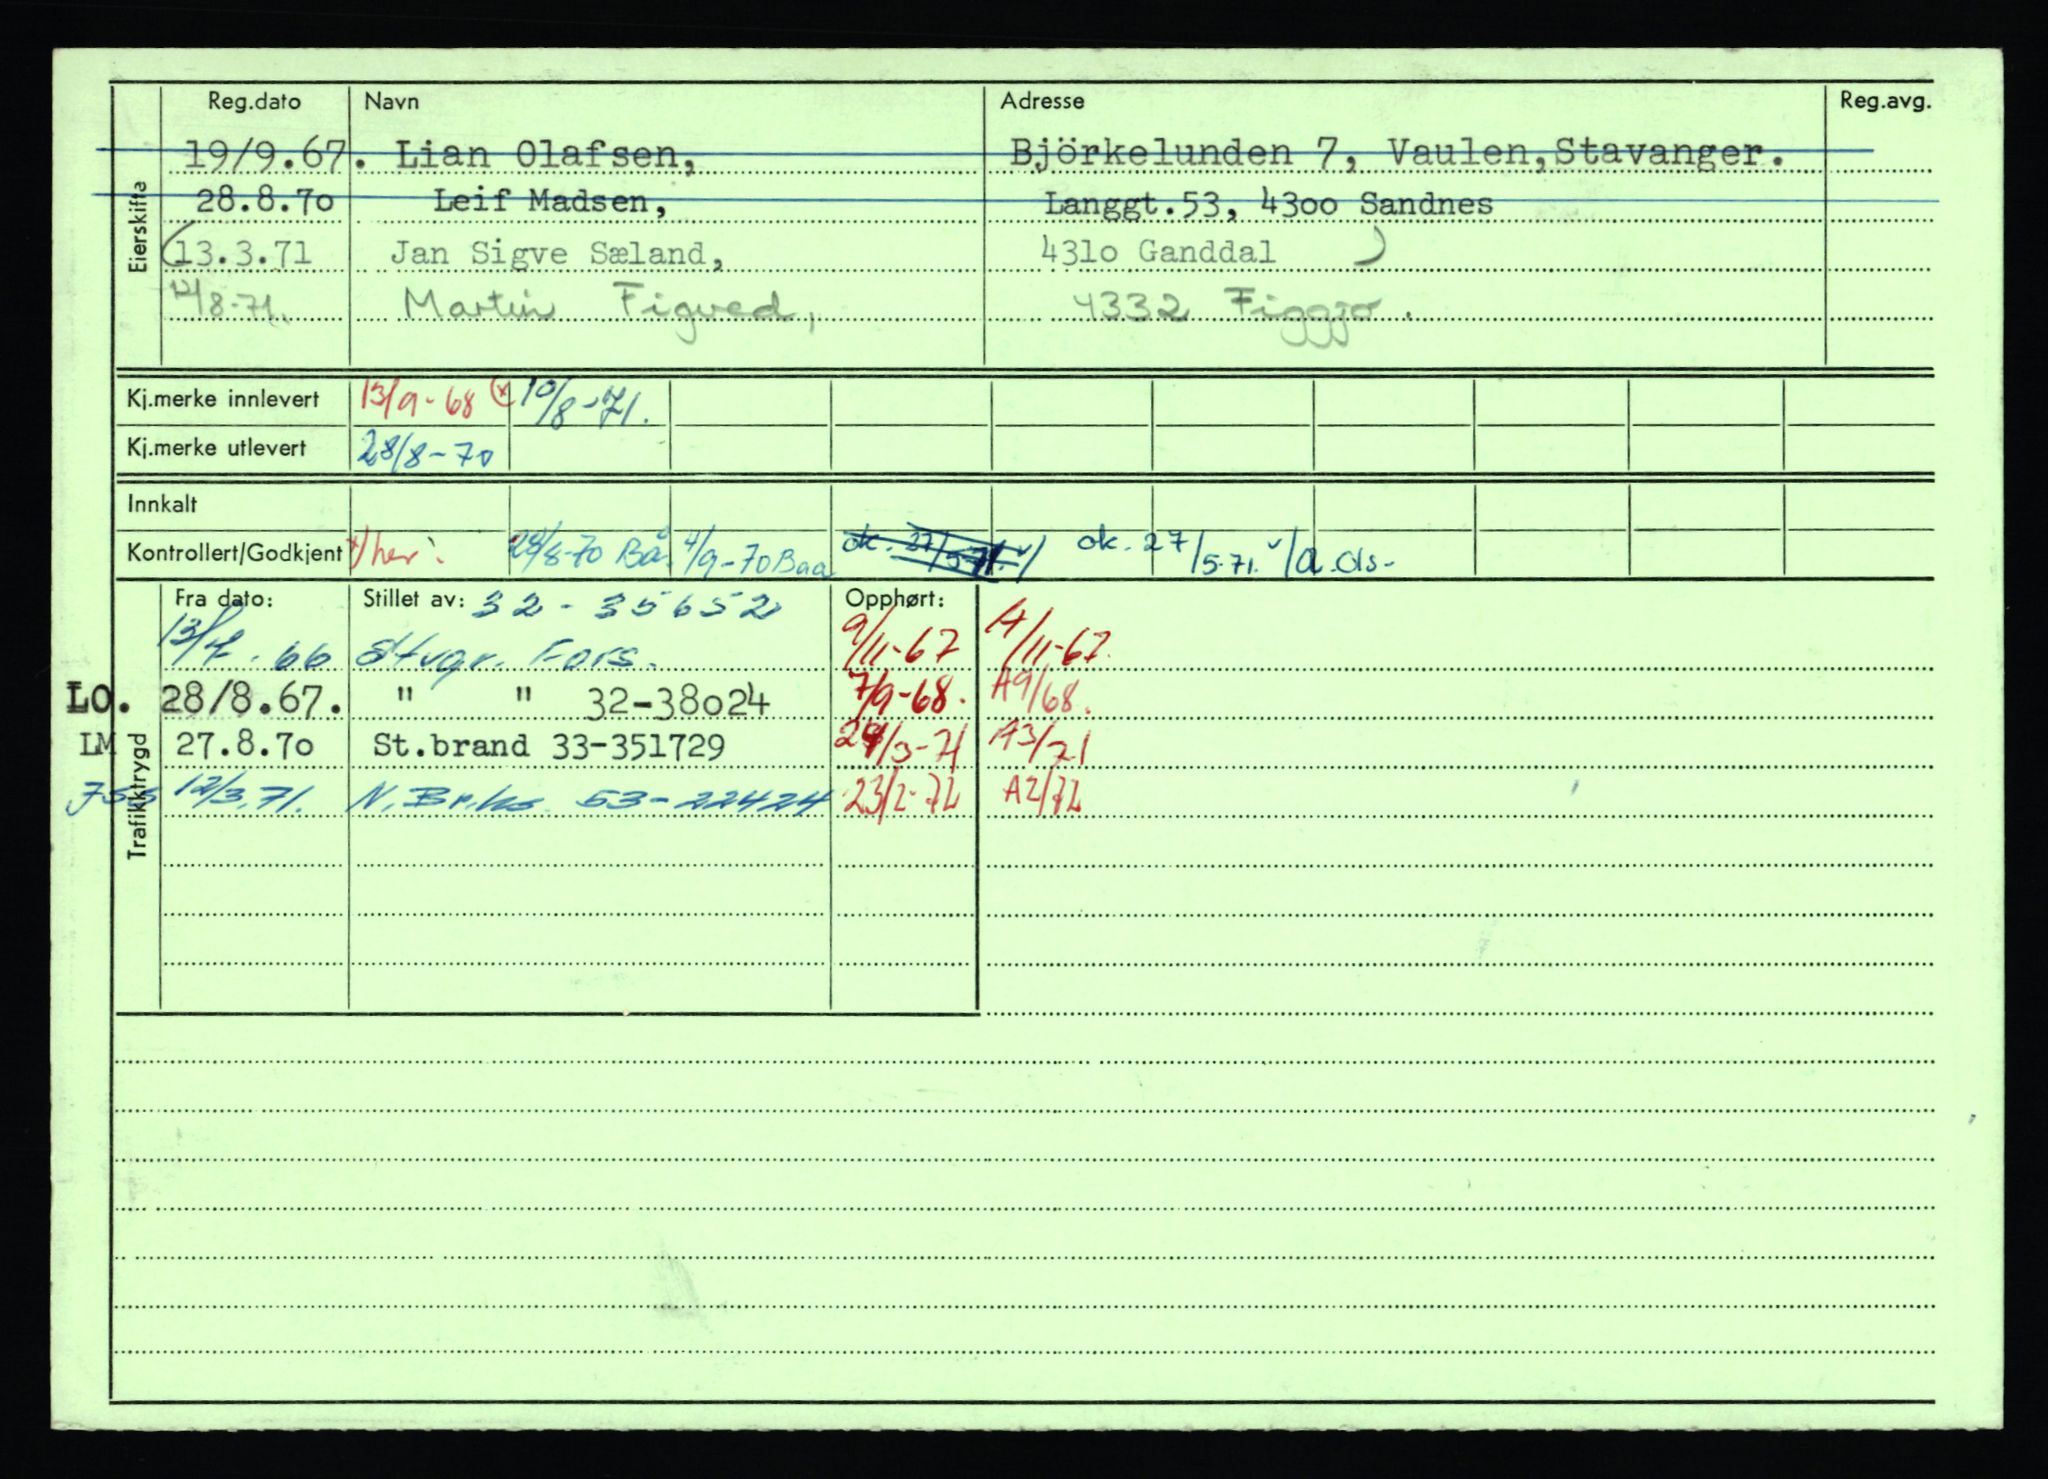 Reg.dato Navn Adresse Reg.avg.
Eierskifte
19/9.67. Lian Olafsen, Björkelunden 7, Vaulen, Stavanger.
28.8.70 Leif Madsen, Langgt.53, 4300 Sandnes
(13.3.71 Jan Sigve Sæland, 4310 Ganddal )
12/8-71. Martin Figved, 4332 Figgjo.
Kj.merke innlevert 13/9-68 (x 10/8-71.
Kj.merke utlevert 28/8-70
Innkalt
Kontrollert/Godkjent x) her. 28/8-70 Bå. 4/9-70 Baa ok. 27/5-71. ok. 27/5-71.
Trafikktrygd
Fra dato: Stillet av: 32-35652 Opphørt:
66 Stvgr. Fors. 9/11-67 A/11-67.
LO. 28/8.67. " " 32-38024 7/9-68. A9/68.
LM 27.8.70 St.brand 33-351729 24/3-71 A3/71
JSS 12/3.71. N. 53-22424 23/2-72 A2/72